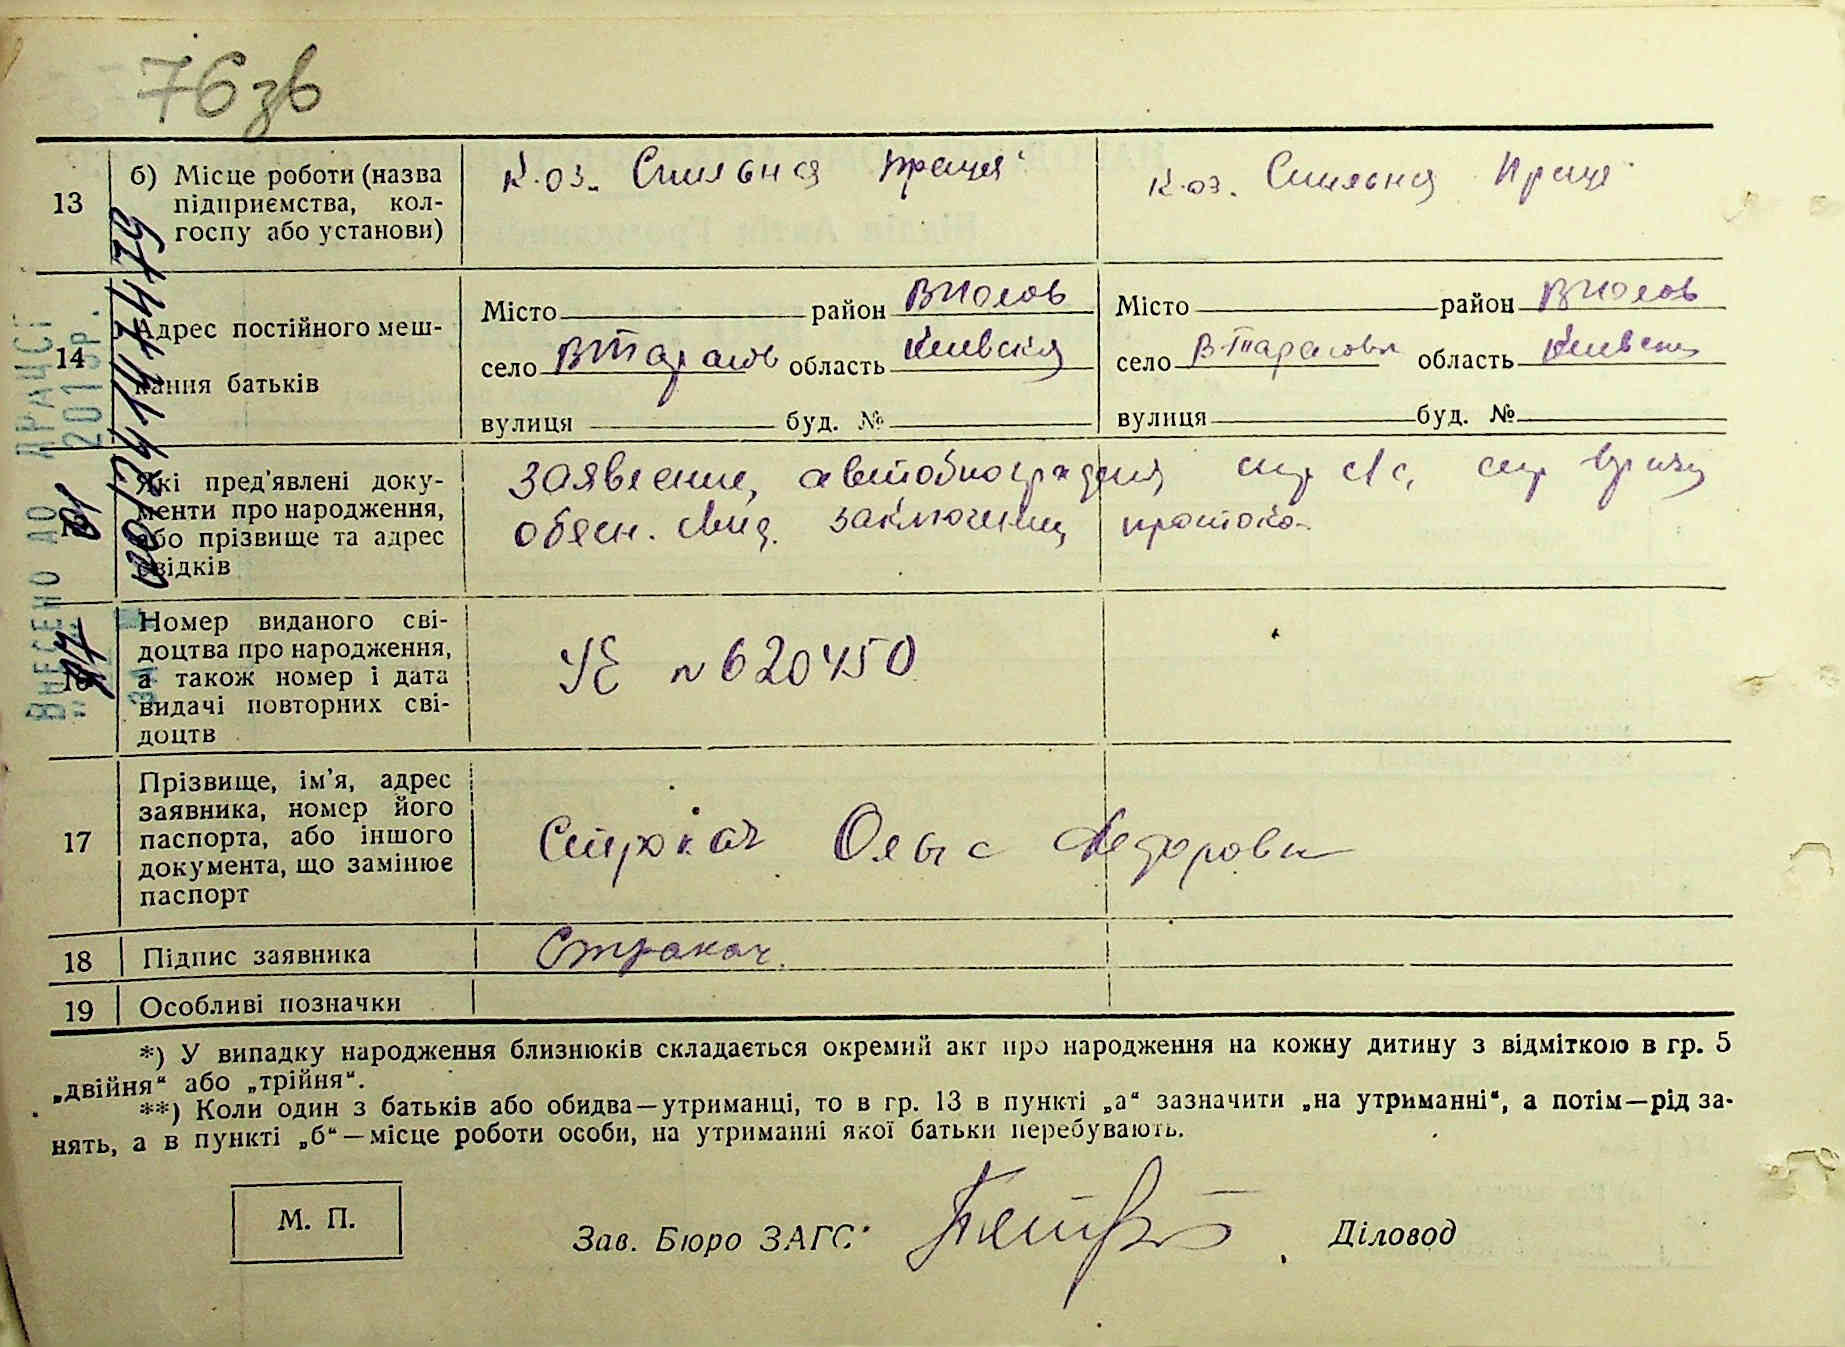 76зв
13
б) Місце роботи (назва
підприємства, кол-
госпу або установи)
К-оз. Спильна Праця
К-оз. Спильна Праця
14
Адрес постійного меш-
кання батьків
Місто район
село область Киевская
вулиця буд. №
Місто район
село В-Тарасовка область Киевская
вулиця буд. №
Які пред'явлені доку-
менти про народження,
або прізвище та адрес
свідків
заявление, автобиография
обясн. свид. заключения протоко-
Номер виданого сві-
доцтва про народження,
а також номер і дата
видачі повторних сві-
доцтв
УЕ №620450
17
Прізвище, ім’я, адрес
заявника, номер його
паспорта, або іншого
документа, що замінює
паспорт
Строкач Федоровна
18
Підпис заявника
Строкач
19
Особливі позначки
ВНЕСЕНО ДО ДРАЦСГ
*) У випадку народження близнюків складається окремий акт про народження на кожну дитину з відміткою в гр. 5
„двійня“ або „трійня“.
**) Коли один з батьків або обидва—утриманці, то в гр. 13 в пункті „а“ зазначити „на утриманні“, а потім—рід за-
нять, а в пункті „б“—місце роботи особи, на утриманні якої батьки перебувають.
М. П.
Зав. Бюро ЗАГС
Діловод